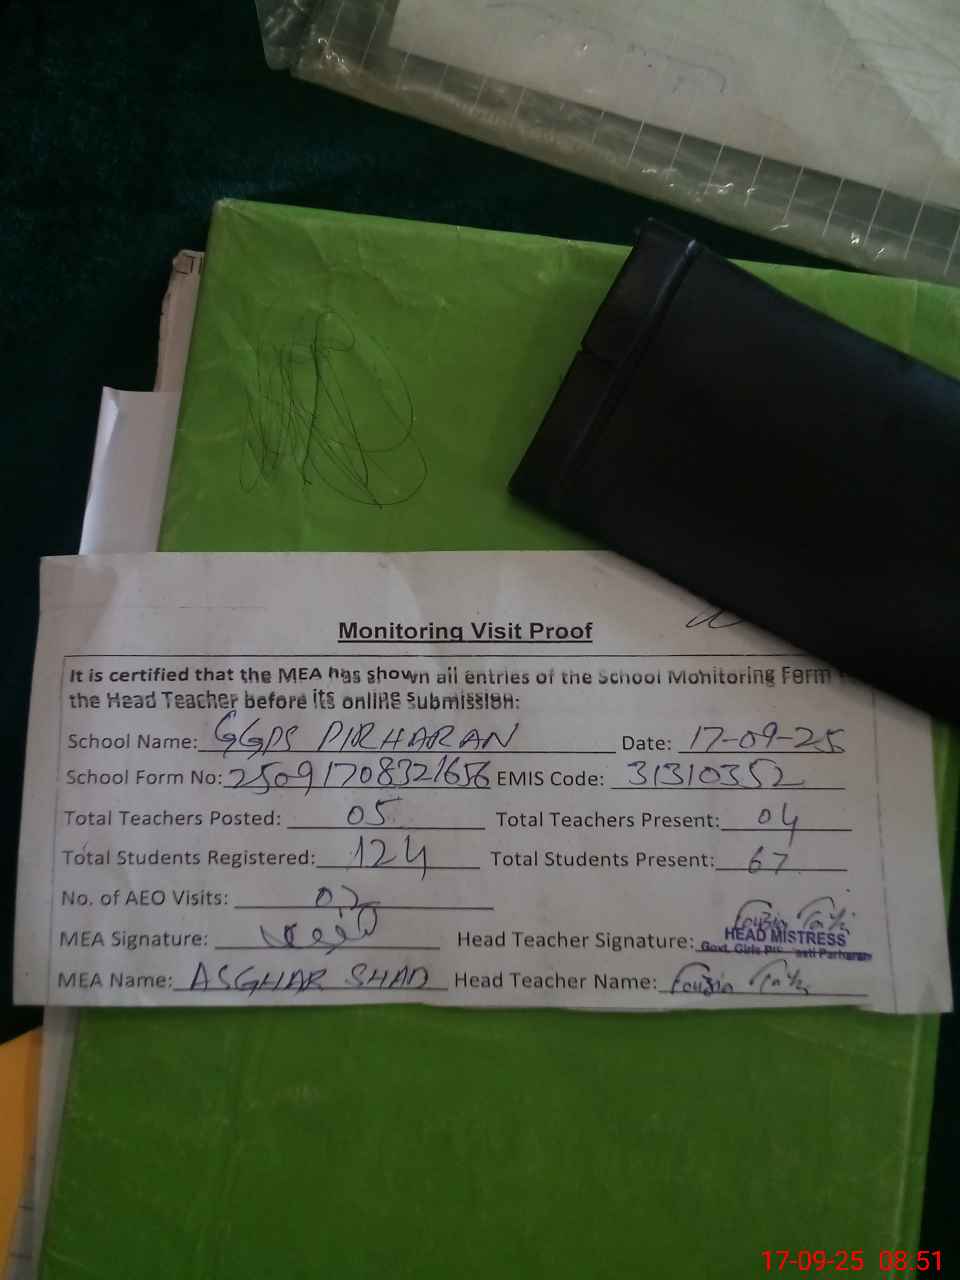 Monitoring Visit Proof
It is certified that the MEA has shown all entries of the School Monitoring Form
the Head Teacher before its online submission:
School Name: GGPS PIR HARAN Date: 17-09-25
School Form No: 25091708321656 EMIS Code: 31310352
Total Teachers Posted: 05 Total Teachers Present: 04
Total Students Registered: 124 Total Students Present: 67
No. of AEO Visits: 02
MEA Signature: Head Teacher Signature:
HEAD MISTRESS
Govt. Girls Basti Parharan
MEA Name: ASGHAR SHAD Head Teacher Name: Fouzia
17-09-25 08:51